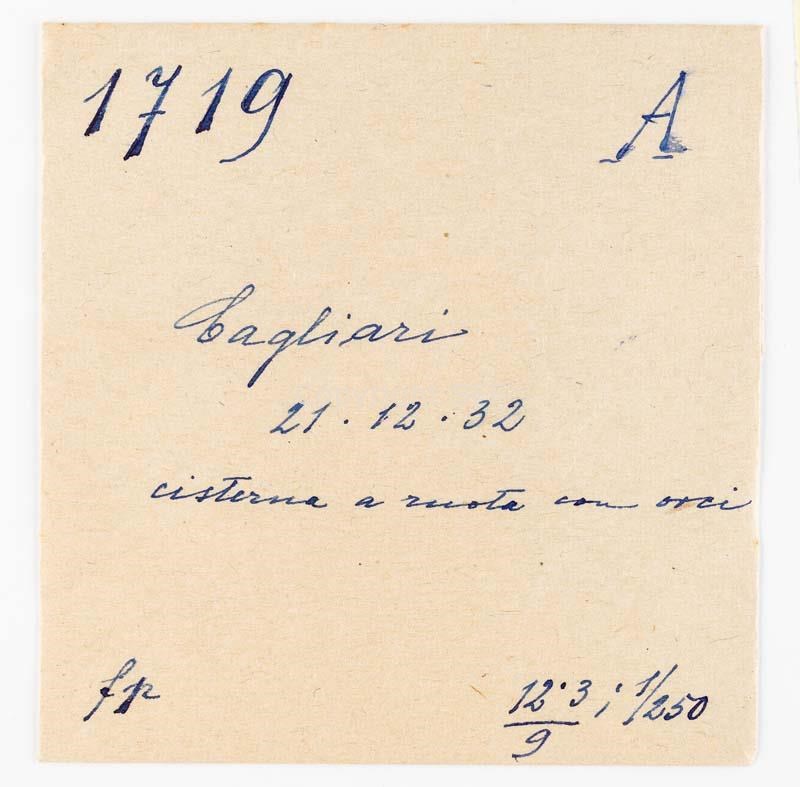 1719 A
Cagliari
21.12.32
cisterna a ruota con orci
fp 12·3 ; 1/250
9